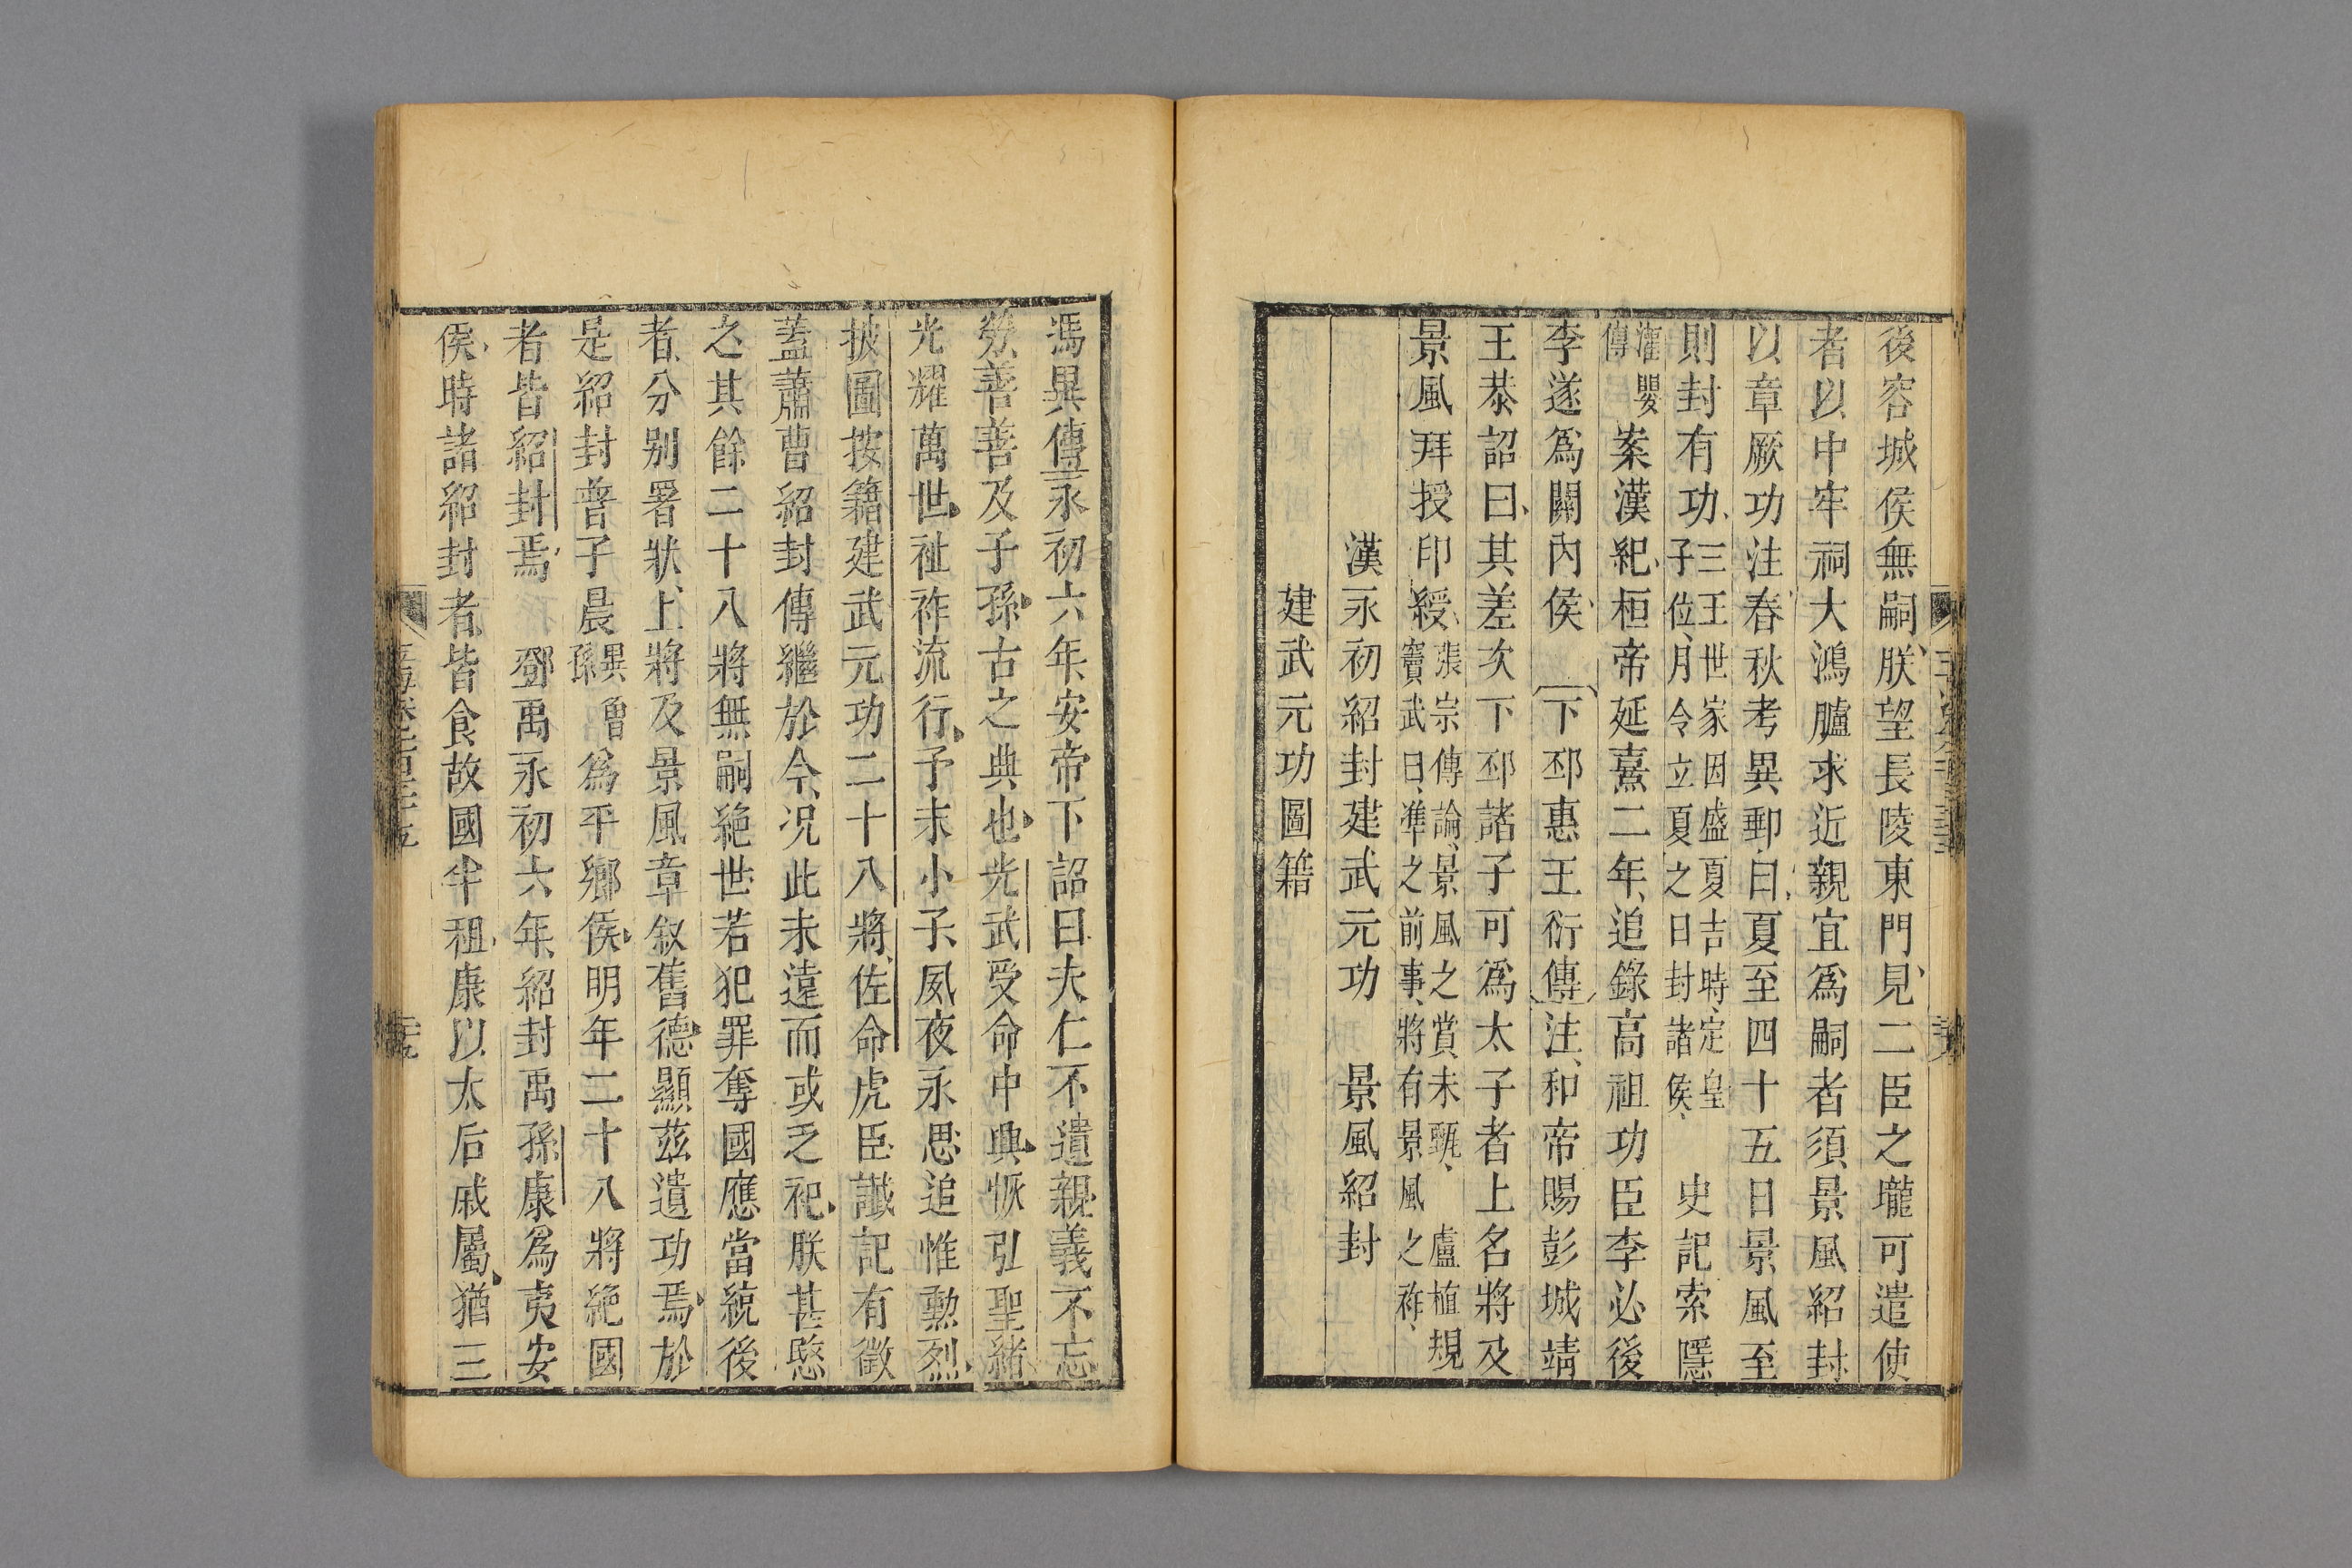 後容城侯無嗣朕望長陵東門見二臣之壠可遣使
者以中牢祠大鴻臚求近親宜爲嗣者須景風紹封
以章厥功注春秋考異郵曰夏至四十五日景風至
則封有功三王世家因盛夏吉時定皇子位月令立夏之日封諸侯史記索隱
灌嬰傳案漢紀桓帝延熹二年追錄高祖功臣李必後
李遂爲關內侯下邳惠王衍傳注和帝賜彭城靖
王恭詔曰其差次下邳諸子可爲太子者上名將及
景風拜授印綬張宗傳論景風之賞未甄竇武曰準之前事將有景風之祚盧植規
漢永初紹封建武元功 景風紹封
建武元功圖籍
馮異傳永初六年安帝下詔曰夫仁不遺親義不忘
勞善善及子孫古之典也光武受命中興恢引聖緒
光耀萬世祉祚流行予末小子夙夜永思追惟勲烈
披圖按籍建武元功二十八將佐命虎臣讖記有徵
蓋蕭曹紹封傳繼於今况此未遠而或乏祀朕甚愍
之其餘二十八將無嗣絶世若犯罪奪國應當統後
者分别署狀上將及景風章叙舊德顯茲遺功焉於
是紹封普子晨異曾孫爲平鄉侯明年二十八將絶國
者皆紹封焉鄧禹永初六年紹封禹孫康爲夷安
侯時諸紹封者皆食故國半租康以太后戚屬猶三